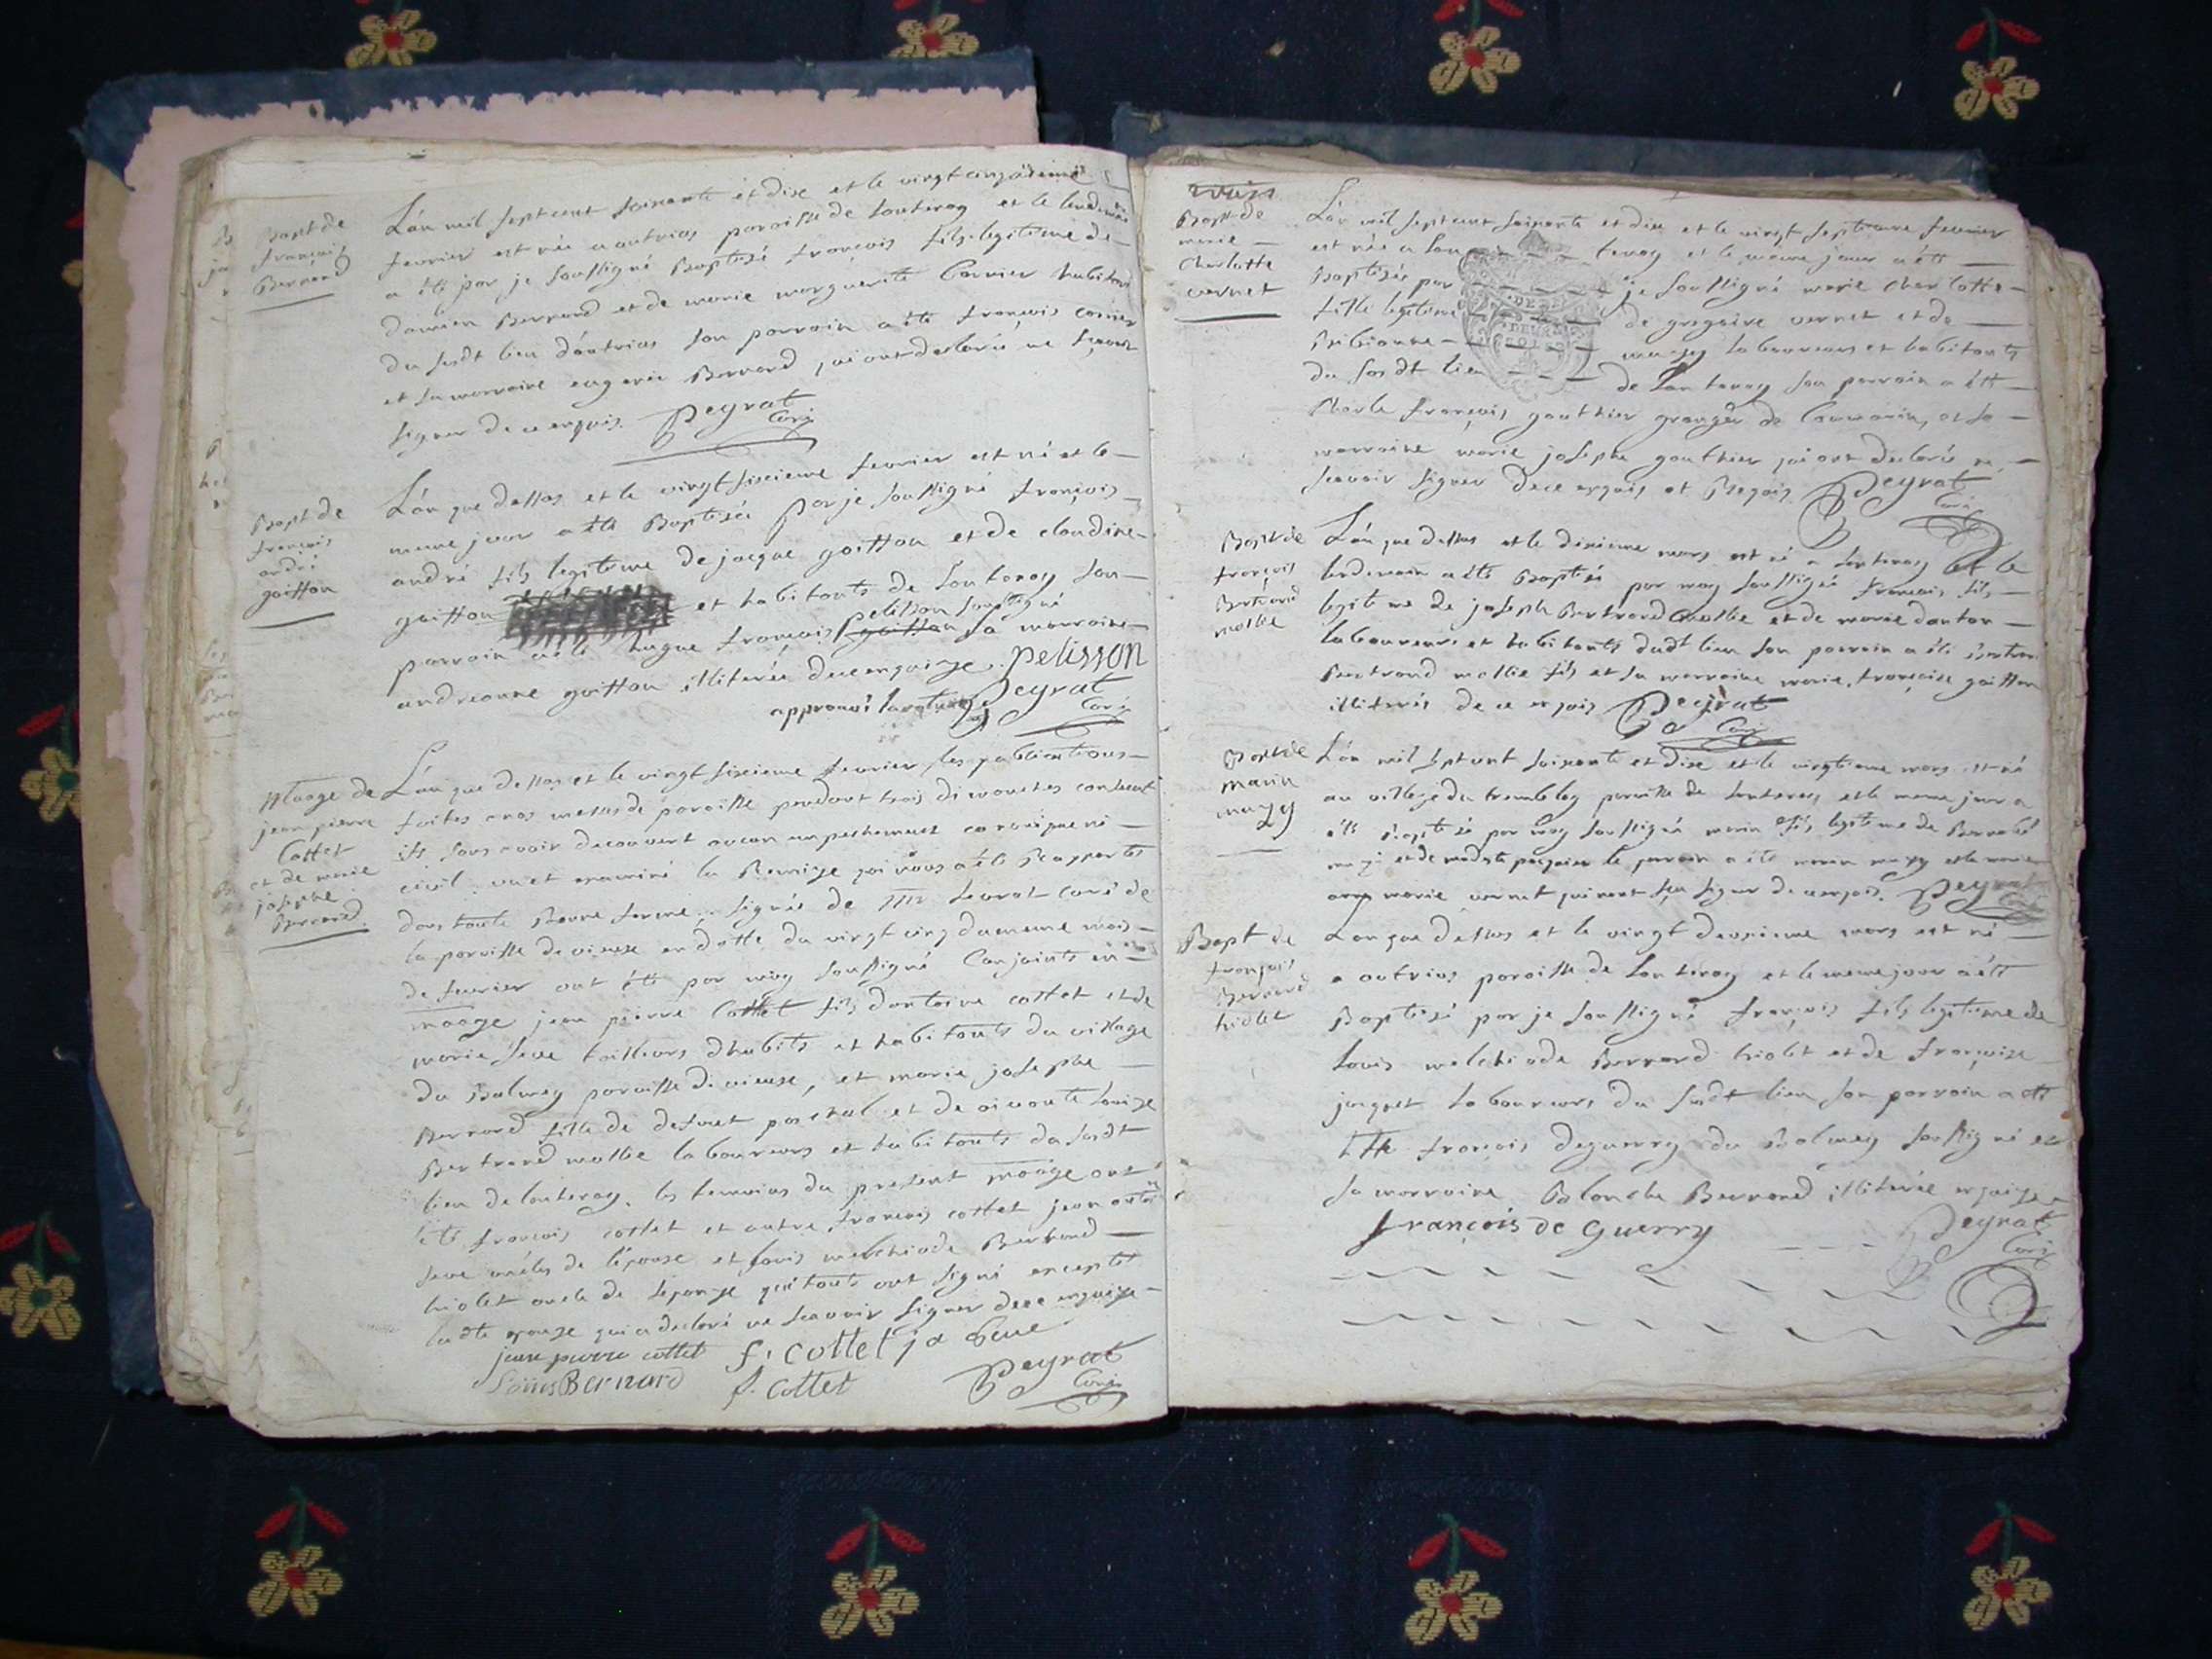 Bapt de
françois
Bernard
L'an mil sept cent soixante et dix et le vingt cinquieme
fevrier est née a autrias paroisse de lonteroy et le lendemain
a été par je soussigné Baptisé françois fils legitime de
damien Bernard et de marie marguerite Cornier habitans
du susdt lieu d'autrias son parrain a été françois cornier
et sa marraine Bernard qui ont declarés ne scavoir
signer de ce enquis. Peyrat
Curé
Bapt de
françois
andré
goitton
L'an que dessus et le vingt sixieme fevrier est né et le
meme jour a été Baptisée par je soussigné françois
andré fils legitime de jacque goitton et de claudine
goitton et habitants de lonteroy son
parrain a été hugue françois pelisson soussigné goitton sa marraine
andreanne goitton illiterée de ce enquise. pelisson
approuvé la rature Peyrat
Curé
Maage de
jean pierre
Cottet
et de marie
josephe
Bernard
L'an que dessus et le vingt sixieme fevrier les publications
faites a nos messes de paroisse pendant trois dimanches consecut
ifs sans avoir decouvert aucun empechement canonique ni
civil vu et examiné la Remise qui nous a été Rapportée
dans toute Bonne forme signée de Mr curé de
la paroisse de en datte du vingt cinq du meme mois
de fevrier ont été par moy soussigné Conjoints en
maage jean pierre Cottet fils d'antoine cottet et de
marie seve tailleurs d'habits et habitants du village
du Balmey paroisse de et marie josephe
Bernard fille de defunt paschal et de vivante louise
Bertrand mollie laboureurs et habitants du susdt
lieu de lonteroy. les temoins du present maage ont
été françois cottet et autre françois cottet jean
seve oncles de l'epouse et louis melchiode Bernard
triolet oncle de l'epouse qui touts ont signé excepté
ladte epouse qui a declaré ne scavoir signer de ce enquise
jean pierre cottet f. cottet j a seve
Loüis Bernard f. cottet Peyrat
Curé
Bapt de
marie
charlotte
vernet
L'an mil sept cent soixante et dix et le vingt septieme fevrier
est née a lonteroy et le meme jour a été
Baptisée par je soussigné marie charlotte
fille legitime de gregoire vernet et de
Bibianne mazuy laboureurs et habitants
du susdt lieu de lonteroy son parrain a été
Charle françois gauthier granger de et sa
marraine marie josephe gauthier qui ont declarés ne
scavoir signer de ce enquis et Requis Peyrat
Curé
Bapt de
françois
Bertrand
mollie
L'an que dessus et le dixieme mars est né a lonteroy et le
lendemain a été Baptisé par moy soussigné françois fils
legitime de joseph Bertrand mollie et de marie danton
laboureurs et habitants dudt lieu son parrain a été
Bertrand mollie fils et sa marraine marie françoise goitton
illiterés de ce enquis Peyrat
Curé
Bapt de
marin
mazuy
L'an mil sept cent soixante et dix et le vingtieme mars est né
au village du trembley paroisse de lonteroy et le meme jour a
été Baptisé par moy soussigné marin fils legitime de Bernabé
mazuy et de modeste le parrain a été marin mazuy et la marraine
marie vernet qui n'ont sçu signer de ce enquis. Peyrat
Bapt de
françois
Bernard
triolet
L'an que dessus et le vingt deuxieme mars est né
a autrias paroisse de lonteroy et le meme jour a été
Baptisé par je soussigné françois fils legitime de
louis melchiode Bernard triolet et de françoise
jacquet laboureurs du susdt lieu son parrain a été
françois deguerry du Balmey soussigné et
sa marraine Blanche Bernard illiterée enquise
françois de guerry Peyrat
Curé